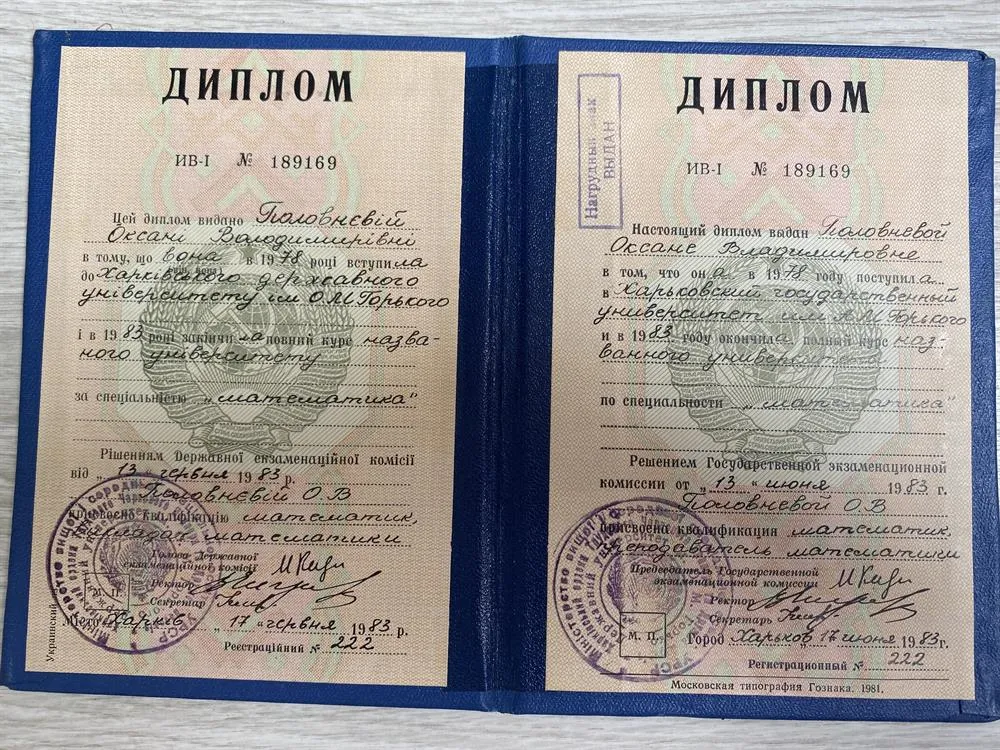 ДИПЛОМ
ИВ-I № 189169
Цей диплом видано Половнєвій
Оксані Володимирівні
в тому, що вона в 1978 році вступила
до Харківського державного
університету ім О.М Горького
і в 1983 році закінчила повний курс назва-
ного університету
за спеціальністю „математика"
Рішенням Державної екзаменаційної комісії
від „13 " червня 1983 р.
Половнєвій О.В
присвоєна кваліфікацію математик,
викладач математики
Голова Державної
екзаменаційної комісії
Ректор
Секретар
М. П.
Місто Харків „17 " червня 1983 р.
Реєстраційний № 222
Украинский
ДИПЛОМ
Нагрудный знак
ВЫДАН
ИВ-I № 189169
Настоящий диплом выдан Половневой
Оксане Владимировне
в том, что она в 1978 году поступила
в Харьковский государственный
университет им А.М Горького
и в 1983 году окончила полный курс наз-
ванного университета
по специальности „математика"
Решением Государственной экзаменационной
комиссии от „13 " июня 1983 г.
Половневой О.В
присвоена квалификация математик,
преподаватель математики
Председатель Государственной
экзаменационной комиссии
Ректор
Секретарь
М. П.
Город Харьков „17 июня 1983 г.
Регистрационный № 222
Московская типография Гознака. 1981.